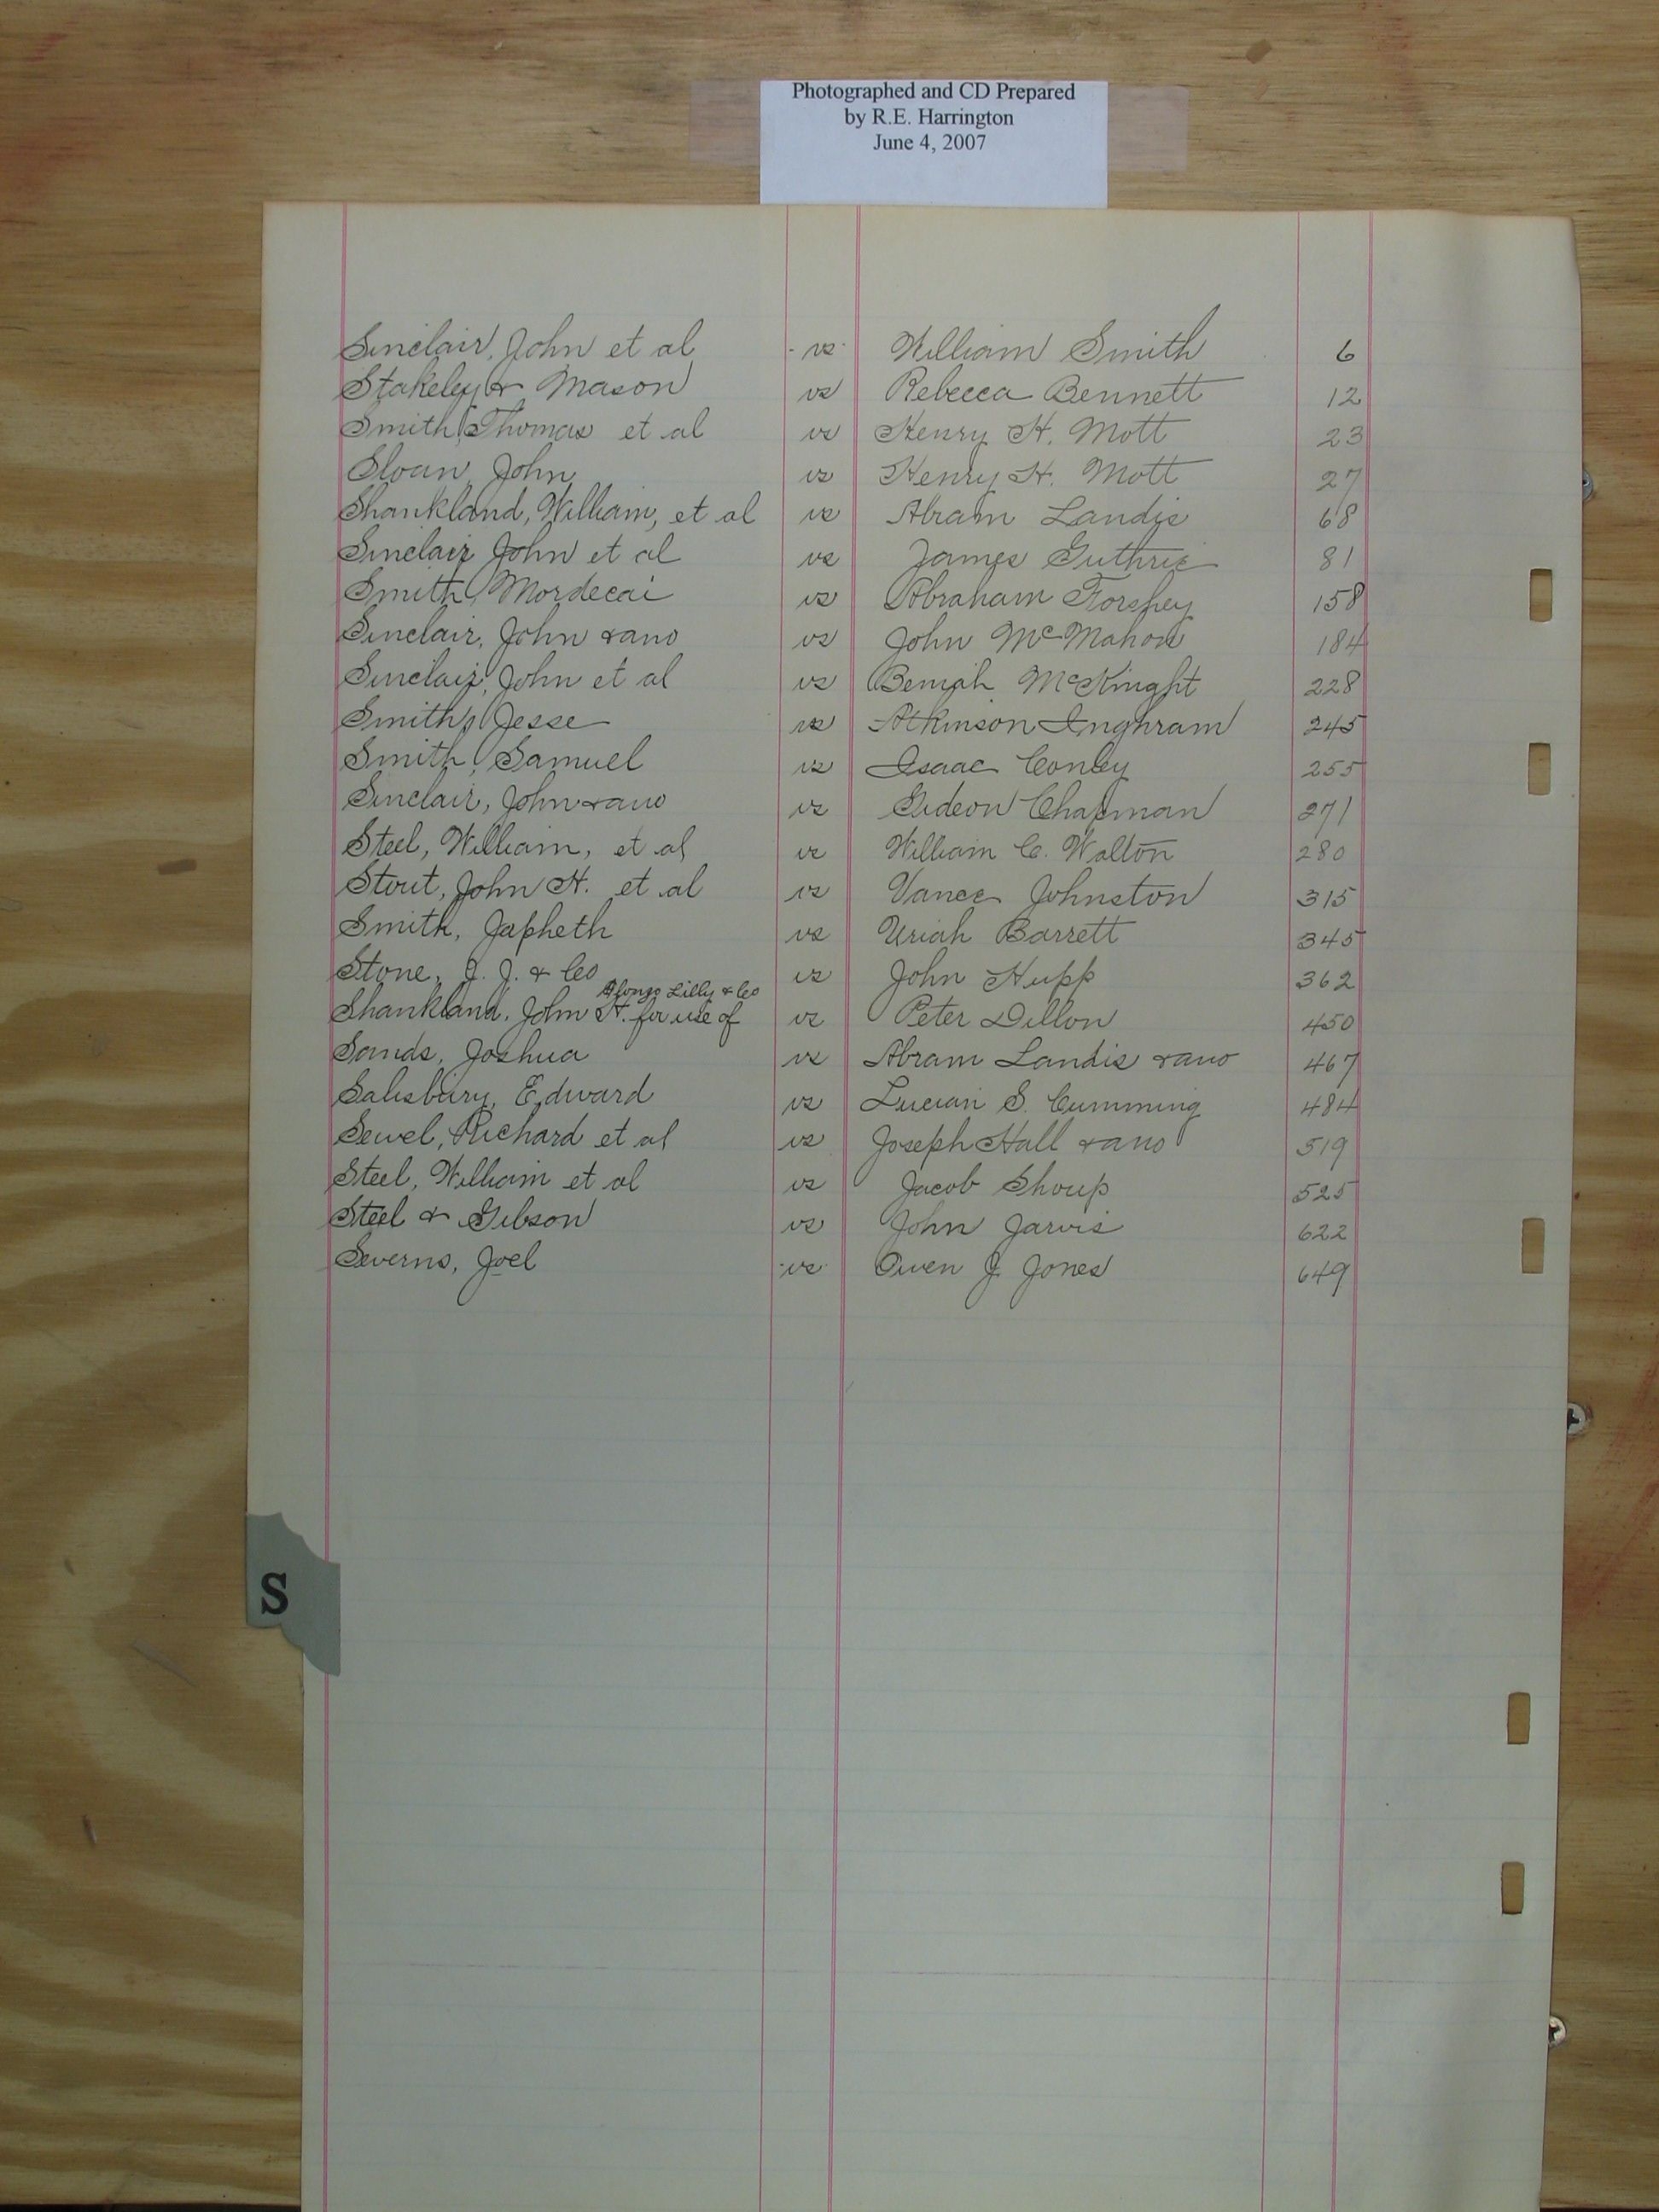 Photographed and CD Prepared
by R.E. Harrington
June 4, 2007
Sinclair, John et al vs William Smith 6
Stakeley & Mason vs Rebecca Bennett 12
Smith, Thomas et al vs Henry H. Mott 23
Sloan, John vs Henry H. Mott 27
Shankland, William, et al vs Abram Landis 68
Sinclair John et al vs James Guthrie 81
Smith, Mordecai vs Abraham Forshey 158
Sinclair, John & ano vs John McMahon 184
Sinclair, John et al vs Beniah McKnight 228
Smith, Jesse vs Atkinson Inghram 245
Smith, Samuel vs Isaac Conley 255
Sinclair, John & ano vs Gideon Chapman 271
Steel, William, et al vs William C. Walton 280
Stout, John H. et al vs Vance Johnston 315
Smith, Japheth vs Uriah Barrett 345
Stone, J. J. & Co vs John Hupp 362
Alonzo Lilly & Co
Shankland, John H. for use of vs Peter Dillon 450
Sands, Joshua vs Abram Landis & ano 467
Salisbury, Edward vs Lucian S. Cumming 484
Sewel, Richard et al vs Joseph Hall & ano 519
Steel, William et al vs Jacob Shoup 525
Steel & Gibson vs John Jarvis 622
Severns, Joel vs Owen J. Jones 649
S